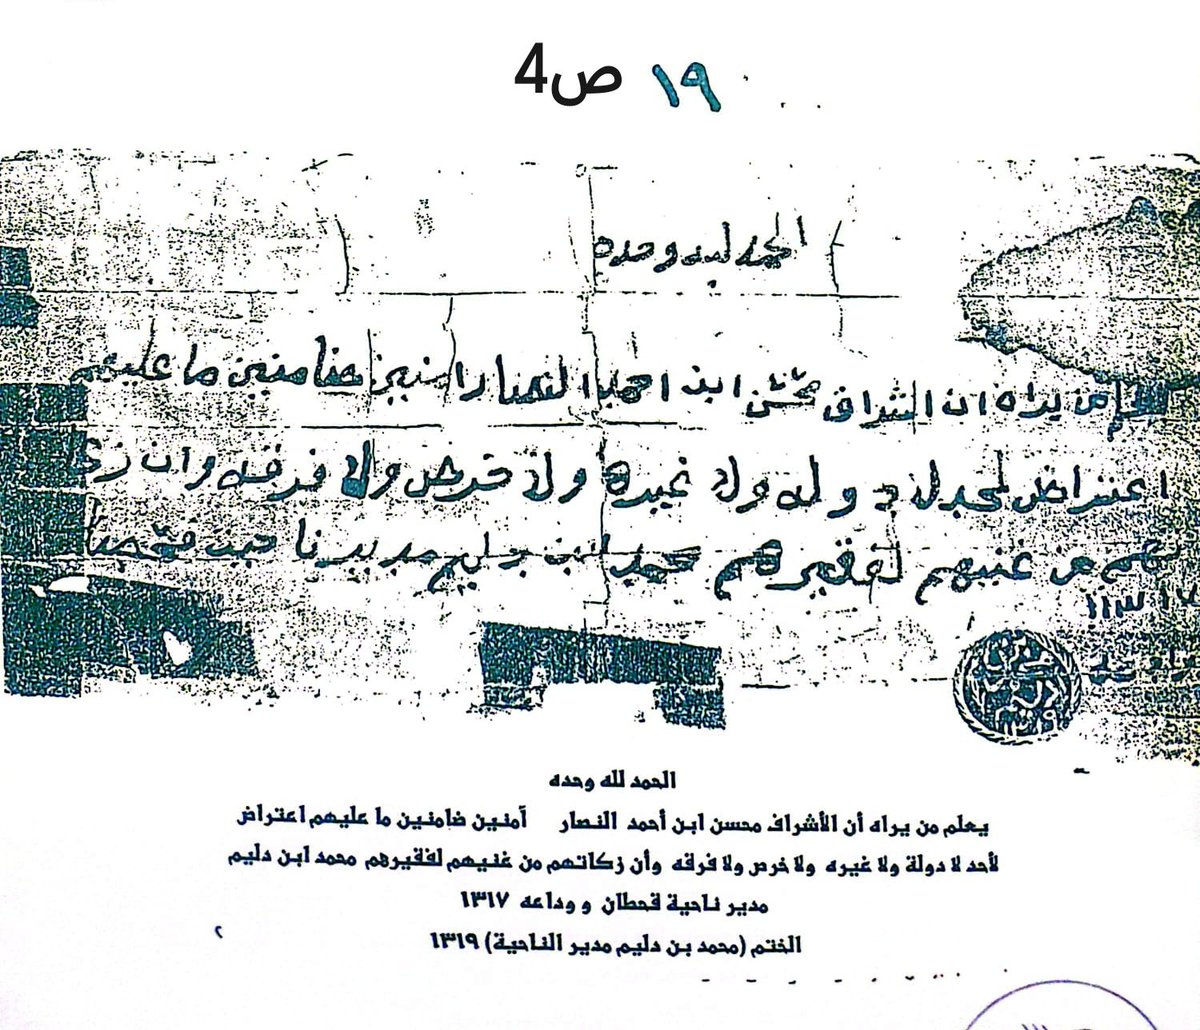 ص4 ١٩
الحمد لله وحده
من يراه ان الاشراف محسن ابن احمد النصار امنين ضامنين ما عليهم
اعتراض لاحد لا دوله ولا غيره ولا خرص ولا فرقه وان زكا
تهم من غنيهم لفقيرهم محمد ابن دليم مدير ناحية قحطان
١٣١٧
دليم
١٣١٩
الحمد لله وحده
يعلم من يراه أن الأشراف محسن ابن أحمد النصار آمنين ضامنين ما عليهم اعتراض
لأحد لا دولة ولا غيره ولا خرص ولا فرقه وأن زكاتهم من غنيهم لفقيرهم محمد ابن دليم
مدير ناحية قحطان و وداعه ١٣١٧
الختم (محمد بن دليم مدير الناحية) ١٣١٩